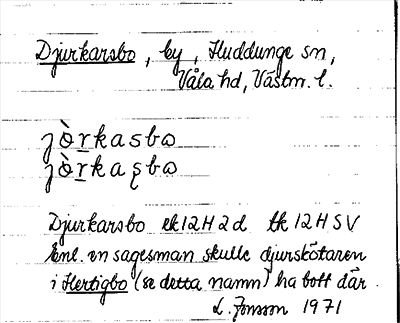 Djurkarsbo, by, Huddunge sn,
Våla hd, Västm. l.
jò̱rkasbo
jò̱rkaʂbo
Djurkarsbo ek 12H2d tk 12HSV
Enl. en sagesman skulle djurskötaren
i Hertigbo (se detta namn) ha bott där.
L. Jonsson 1971